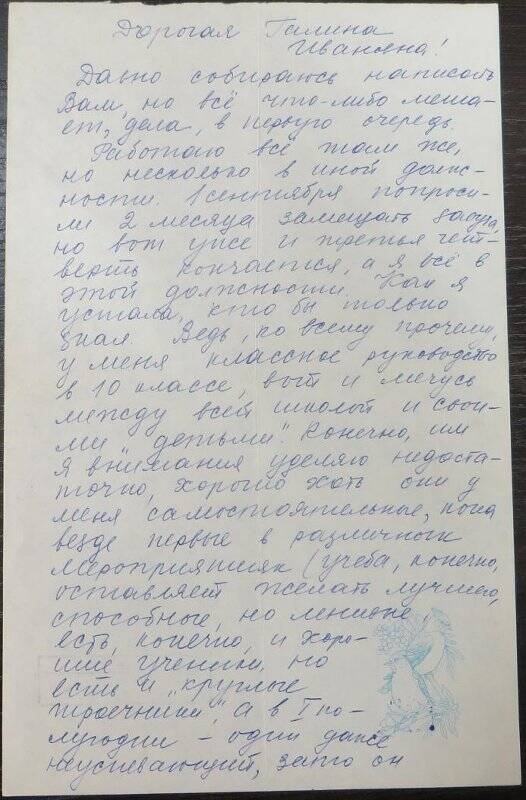 Дорогая Галина
Ивановна!
Давно собираюсь написать
Вам, но всё что-либо меша-
ет, дела, в первую очередь.
Работаю всё там же,
но несколько в иной долж-
ности. 1 сентября попроси-
ли 2 месяца замещать завуча,
но вот уже и третья чет-
верть кончается, а я всё в
этой должности. Как я
устала, кто бы только
знал. Ведь, ко всему прочему,
у меня классное руководство
в 10 классе, вот и мечусь
между всей школой и свои-
ми „детьми". Конечно, им
я внимания уделяю недоста-
точно, хорошо хоть они у
меня самостоятельные, пока
везде первые в различных
мероприятиях (учеба, конечно,
оставляет желать лучшего,
способные, но ленивые,
есть, конечно, и хоро-
шие ученики, но
есть и „круглые
троечники", а в I по-
лугодии – один даже
неуспевающий, зато он